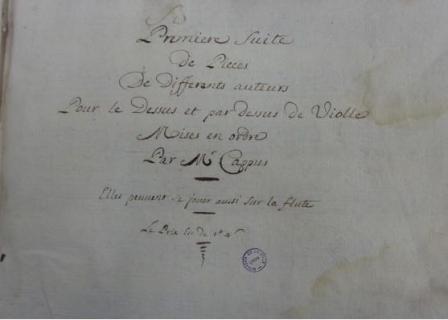 Premiere Suite
De Pieces
De Differents auteurs
Pour le Dessus et par dessus de Violle
Mises en ordre
Par Mr Cappus
Elles peuvent se jouer aussi sur la flute
Le Prix Est de